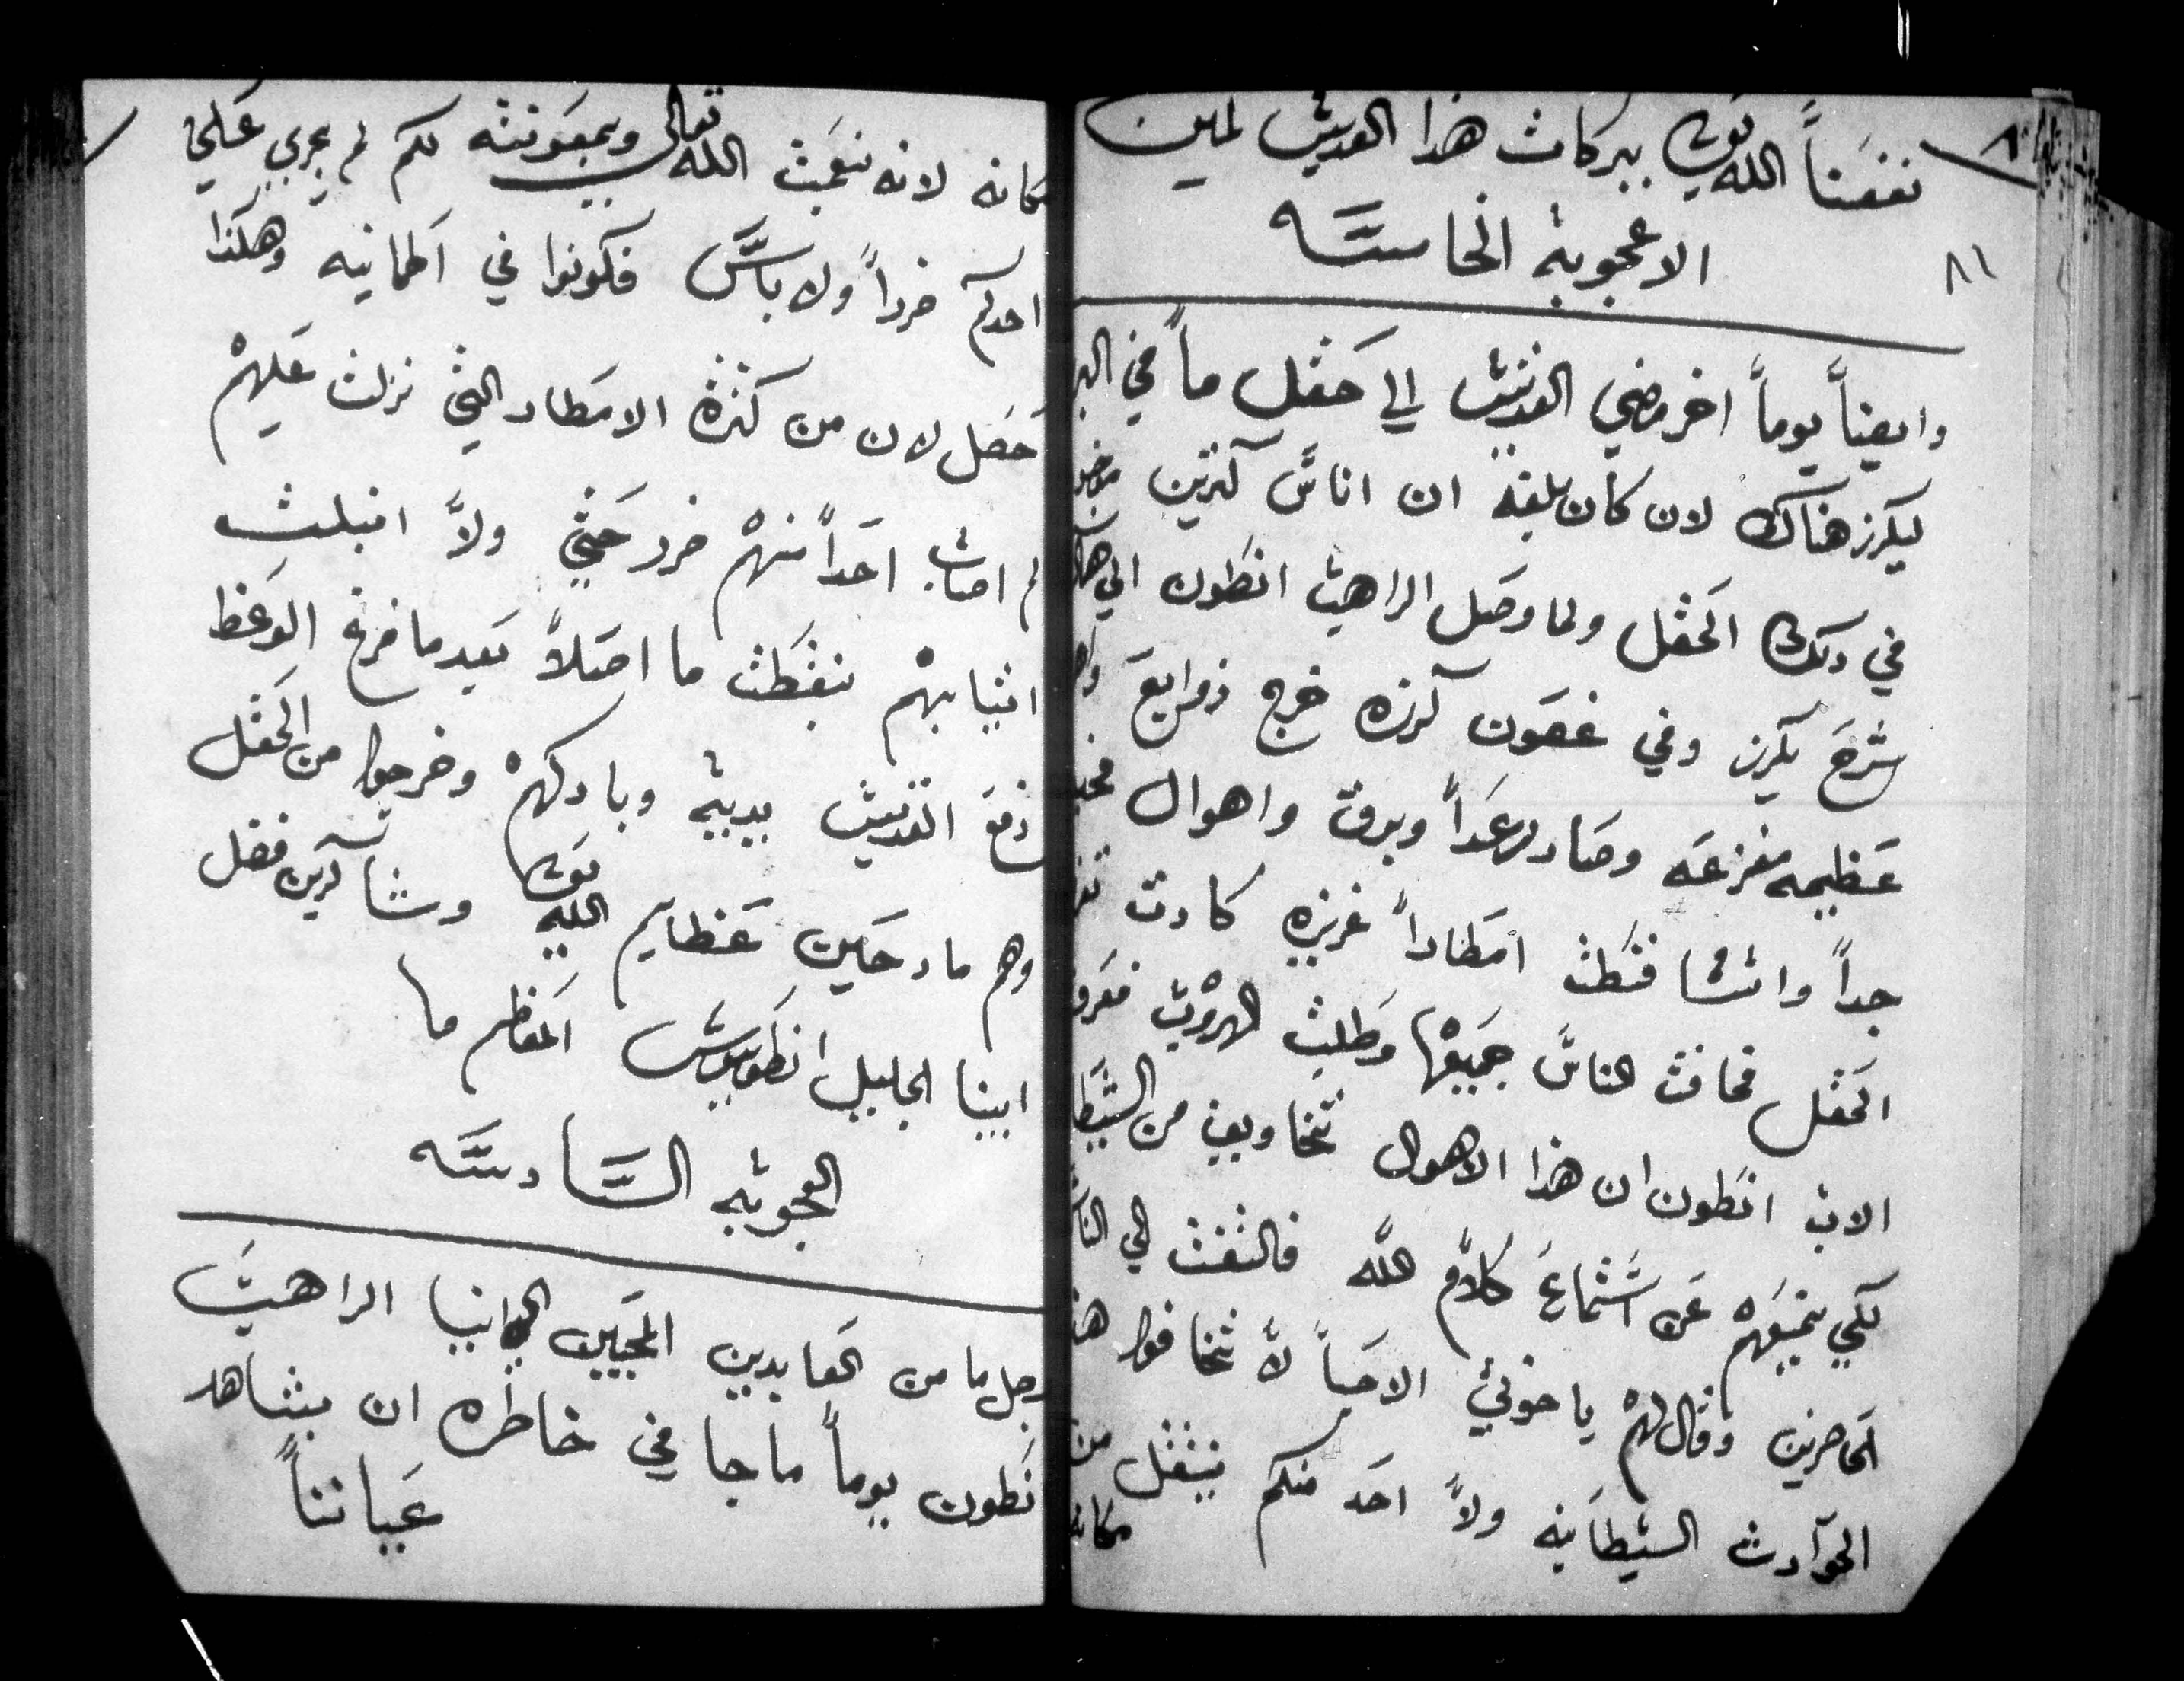 نفعنا الله تعالى ببركات هذا القديس امين
الاعجوبة الخامسه
٨١
وايضاً يوماً اخر مضي القديس الي حقل ماً في البر
ليكرز هناك لان كان بلغه ان اناسً كثرين
في ذلك الحقل ولما وصل الراهب انطون الي
شرع يكرز وفي غصون كرزه خرج زوابع
عظيمه مفزعه وصار رعداً وبرق واهوال
جداً وانشا فشطت امطاراً غزيزه كادت
الحقل فخافت الناس جميعها وطلبت الهروب
الاب انطون ان هذا الاهوال تخاويف من
لكي يمنعهم عن اشتماع كلام الله فالتفت الي الناس
الحاضرين وقال لهم ياخوتي الاحباً لا تخافوا
الحوادث الشيطانيه ولا احد منكم ينتقل من
مكانه
مكانه لانه بنعمت الله تعالى وبمعونته لكم لم يجري علي
احدكم ضرراً ولا باس فكونوا في اطمانيه وهكذا
حصل لان من كثرة الامطار التي نزلت عليهم
لم اصاب احداً منهم ضرر حتي ولا انبلت
اثيابهم بنقطت ما اصلاً بعدما فرغ الوعظ
رفع القديس يديه وباركهم وخرجوا من الحقل
وهم مادحين عظايم الله تعالى وشاكرين فضل
ابينا الجليل انطونيوس المعظم ما
العجوبه السادسه
رجل ما من العابدين المحبين الراهب
انطون يوماً ما جا في خاطره ان يشاهد
عياناً